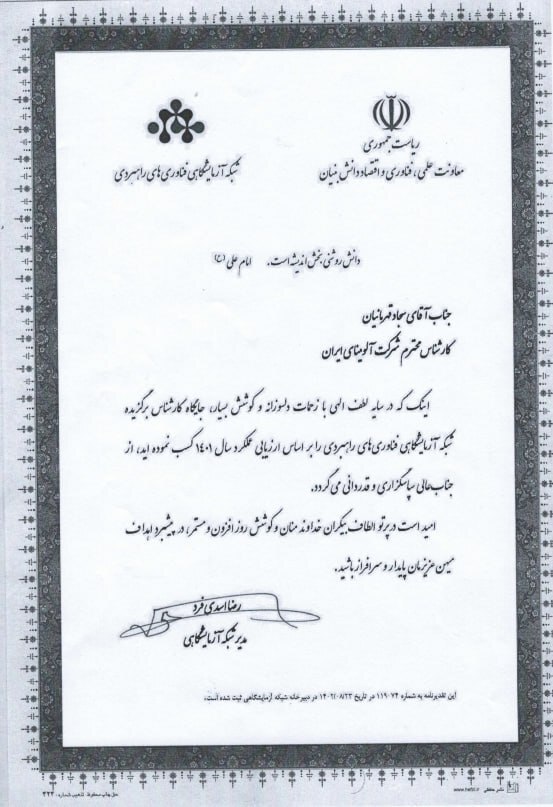 ریاست جمهوری
معاونت علمی، فناوری و اقتصاد دانش بنیان
شبکه آزمایشگاهی فناوری‌های راهبردی
دانش روشنی بخش اندیشه است. امام علی (ع)
جناب آقای سجاد قهرمانیان
کارشناس محترم شرکت آلومینای ایران
اینک که در سایه لطف الهی با زحمات دلسوزانه و کوشش بسیار، جایگاه کارشناس برگزیده
شبکه آزمایشگاهی فناوری‌های راهبردی را بر اساس ارزیابی عملکرد سال ۱۴۰۱ کسب نموده اید، از
جناب‌عالی سپاسگزاری و قدردانی می‌گردد.
امید است در پرتو الطاف بیکران خداوند منان و کوشش روز افزون و مستمر، در پیشبرد اهداف
میهن عزیزمان پایدار و سرافراز باشید.
رضا اسدی فرد
مدیر شبکه آزمایشگاهی
این تقدیرنامه به شماره ۱۱۹۰۷۴ در تاریخ ۱۴۰۲/۰۸/۲۳ در دبیرخانه شبکه آزمایشگاهی ثبت شده است.
حق چاپ محفوظ. تذهیب شماره: ۴۲۲